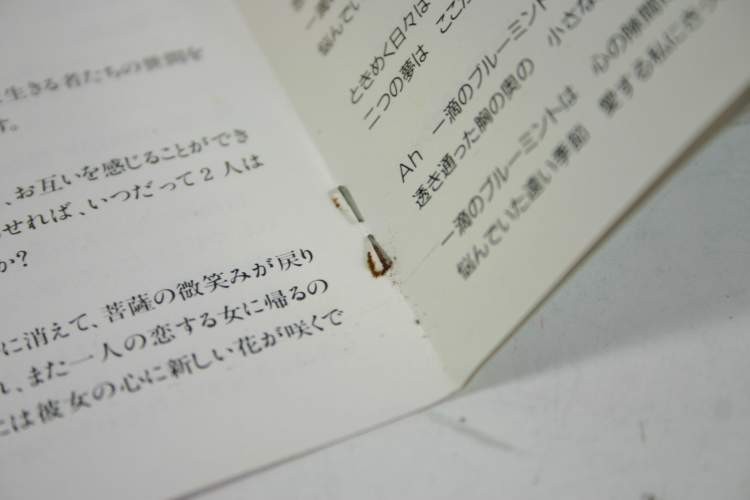 生きる者たちの狭間を
す。
、お互いを感じることができ
せれば、いつだって2人は
か?
に消えて、菩薩の微笑みが戻り
れ、また一人の恋する女に帰るの
には彼女の心に新しい花が咲くで
一滴
悩んでい
ときめく日々は ここか
二つの夢は
Ah 一滴のブルーミント
透き通った胸の奥の 小さな
一滴のブルーミントは 心の隙間
悩んでいた遠い季節 愛する私に